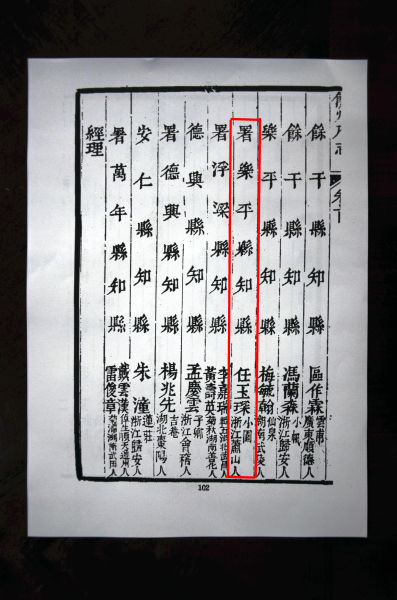 餘干縣知縣 區作霖 雲甫 廣東順德人
餘干縣知縣 馮蘭森 小帆 浙江歸安人
樂平縣知縣 梅毓翰 仙泉 湖南武陵人
署樂平縣知縣 任玉琛 小園 浙江蕭山人
署浮梁縣知縣 李嘉瑞 黃壽英
德興縣知縣 孟慶雲 子卿 浙江會稽人
署德興縣知縣 楊兆先 吉巷 湖北棗陽人
安仁縣知縣 朱潼 蓮莊 浙江歸安人
署萬年縣知縣 雷俊章
經理
102